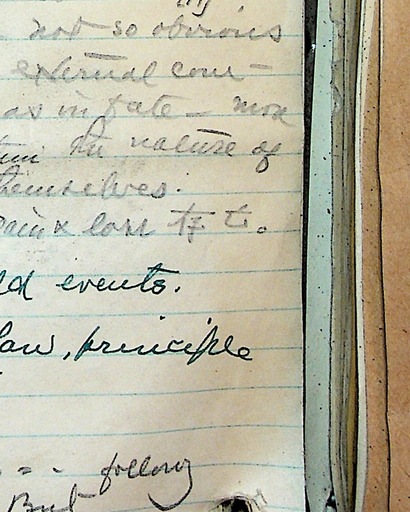 not so obvious
external com-
as in fate - more
the nature of
themselves.
pain & loss
events.
law, principle
follow
But